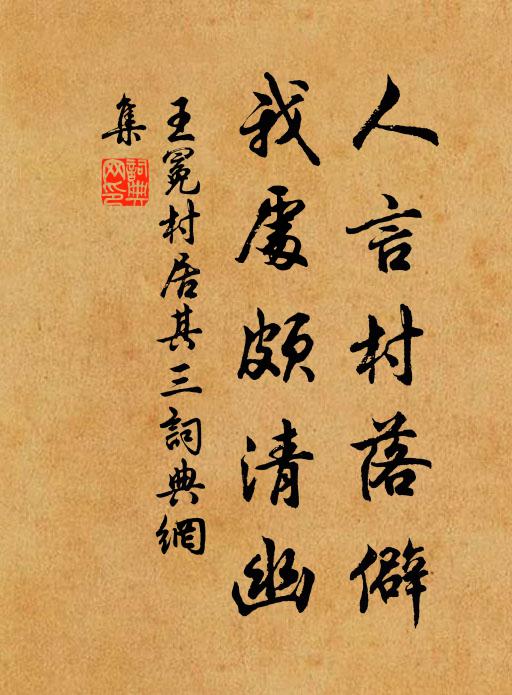 人言村落僻
我處頗清幽
王冕村居其三詞典網
集
詞典網印